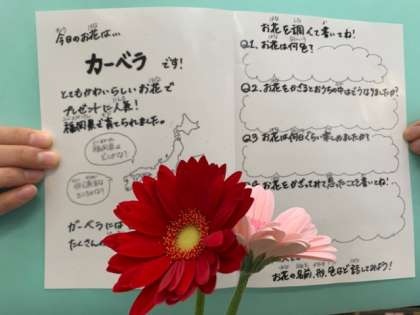 今日のお花は…
カーベラ です!
とてもかわいらしいお花で
プレゼントに人気!
福岡県で育てられました。
福岡県は
どこかな?
ガーベラには
たくさん
お花を調べて書いてね!
Q1. お花は何色?
Q2. お花をかざるとおうちの中はどうなりましたか?
Q3 お花は何日くらい楽しめましたか?
お花をかざってみて思ったことを書いてね!
お花の名前、形、色など話してみよう!